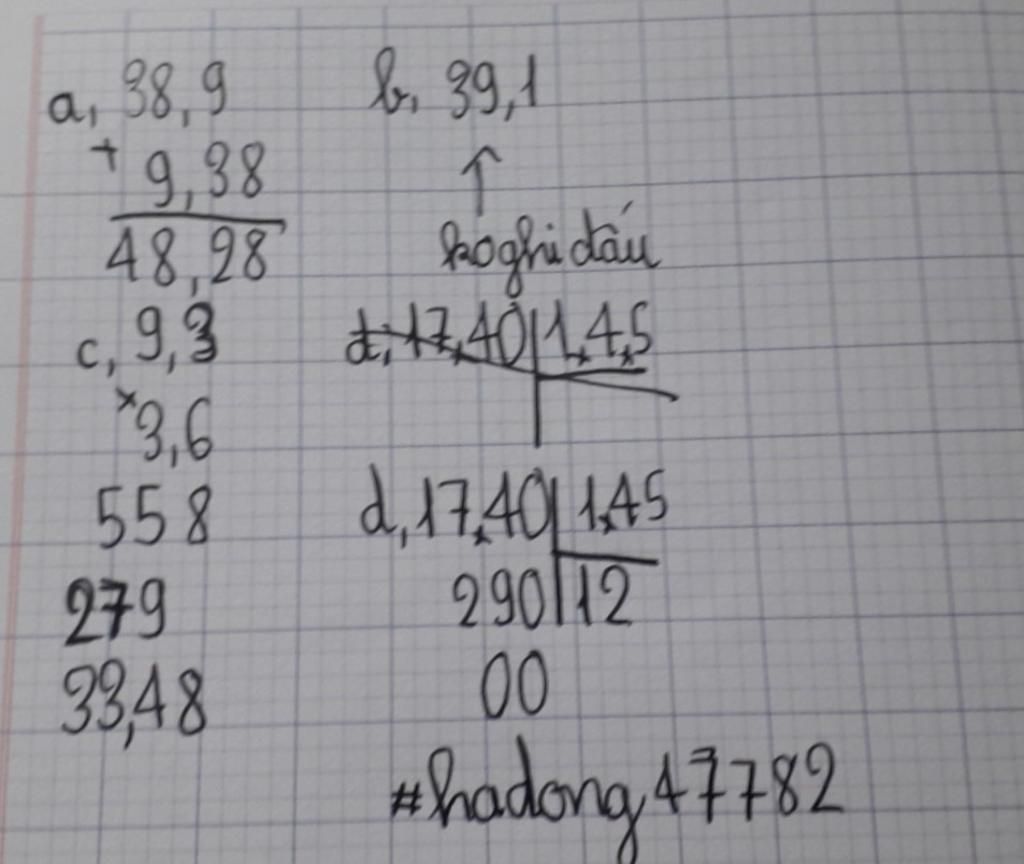 a, 38,9
+ 9,38
48,28
b, 39,1
↑
ko ghi dấu
c, 9,3
× 3,6
558
279
33,48
d, 17,40 1,4,5
d, 17,40 1,45
290 12
00
#hadong47782